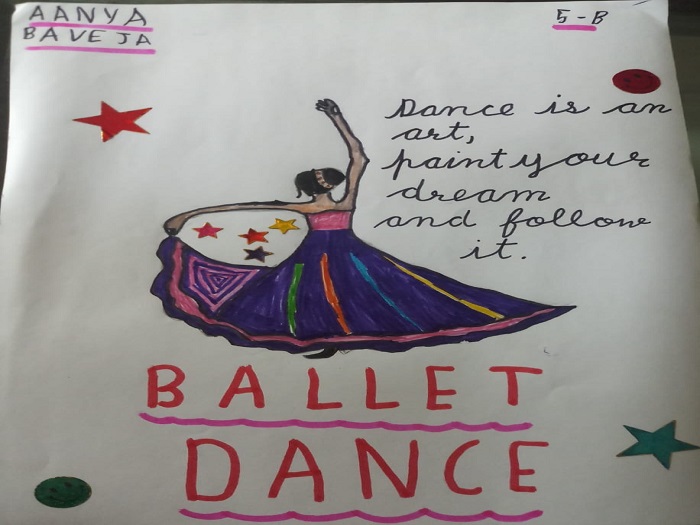 AANYA
BAVEJA
5-B
Dance is an
art,
paint your
dream
and follow
it.
BALLET
DANCE